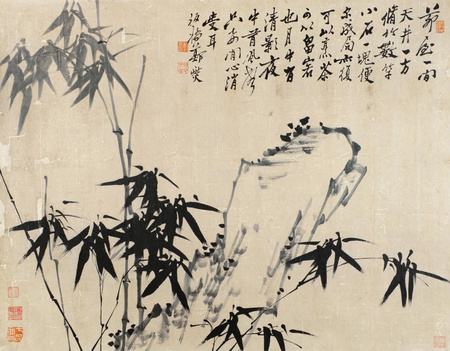 茆屋一間
天井一方
脩竹數竿
小石一塊便
尔成局亦復
可以烹茶
可以留客
也月中有
清影夜
中有風聲
只要閒心消
受耳
板橋鄭燮